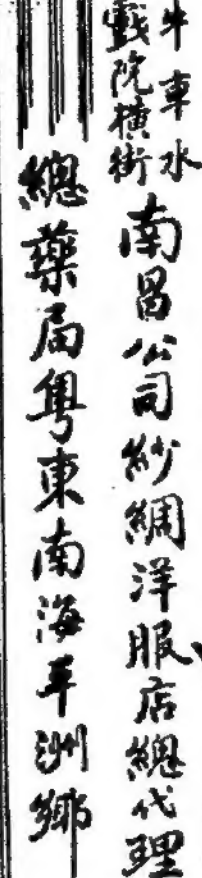 牛車水
戲院橫街
南昌公司紗綢洋服店總代理
總藥局粵東南海平洲鄉